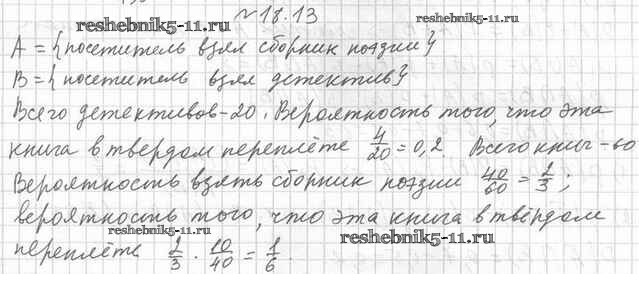 №18.13
reshebnik5-11.ru
A = {посетитель взял сборник поэзии}
reshebnik5-11.ru
B = {посетитель взял детектив}
Всего детективов-20. Вероятность того, что эта
книга в твердом переплёте 4/20 = 0,2. Всего книг-60
Вероятность взять сборник поэзии 40/60 = 2/3;
вероятность того, что эта книга в твёрдом
переплёте 2/3 · 10/40 = 1/6.
reshebnik5-11.ru
reshebnik5-11.ru